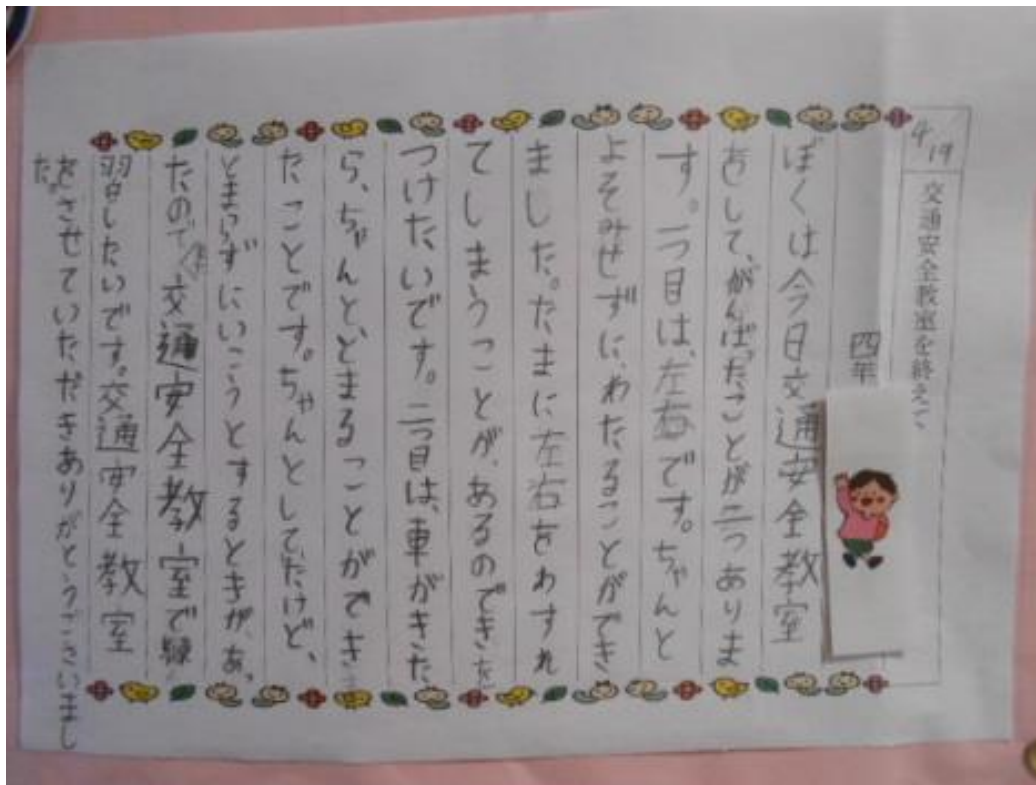 4/19
交通安全教室を終えて
四年
ぼくは今日交通安全教室
をして、がんばったことが二つありま
す。一つ目は、左右です。ちゃんと
よそみせずに、わたることができ
ました。たまに左右をわすれ
てしまうことが、あるのできを
つけたいです。二つ目は、車がきた
ら、ちゃんと、とまることができ
たことです。ちゃんとしてたけど、
とまらずにいこうとするときが、あっ
たので、交通安全教室で練
習したいです。交通安全教室
をさせていただきありがとうございまし
た。